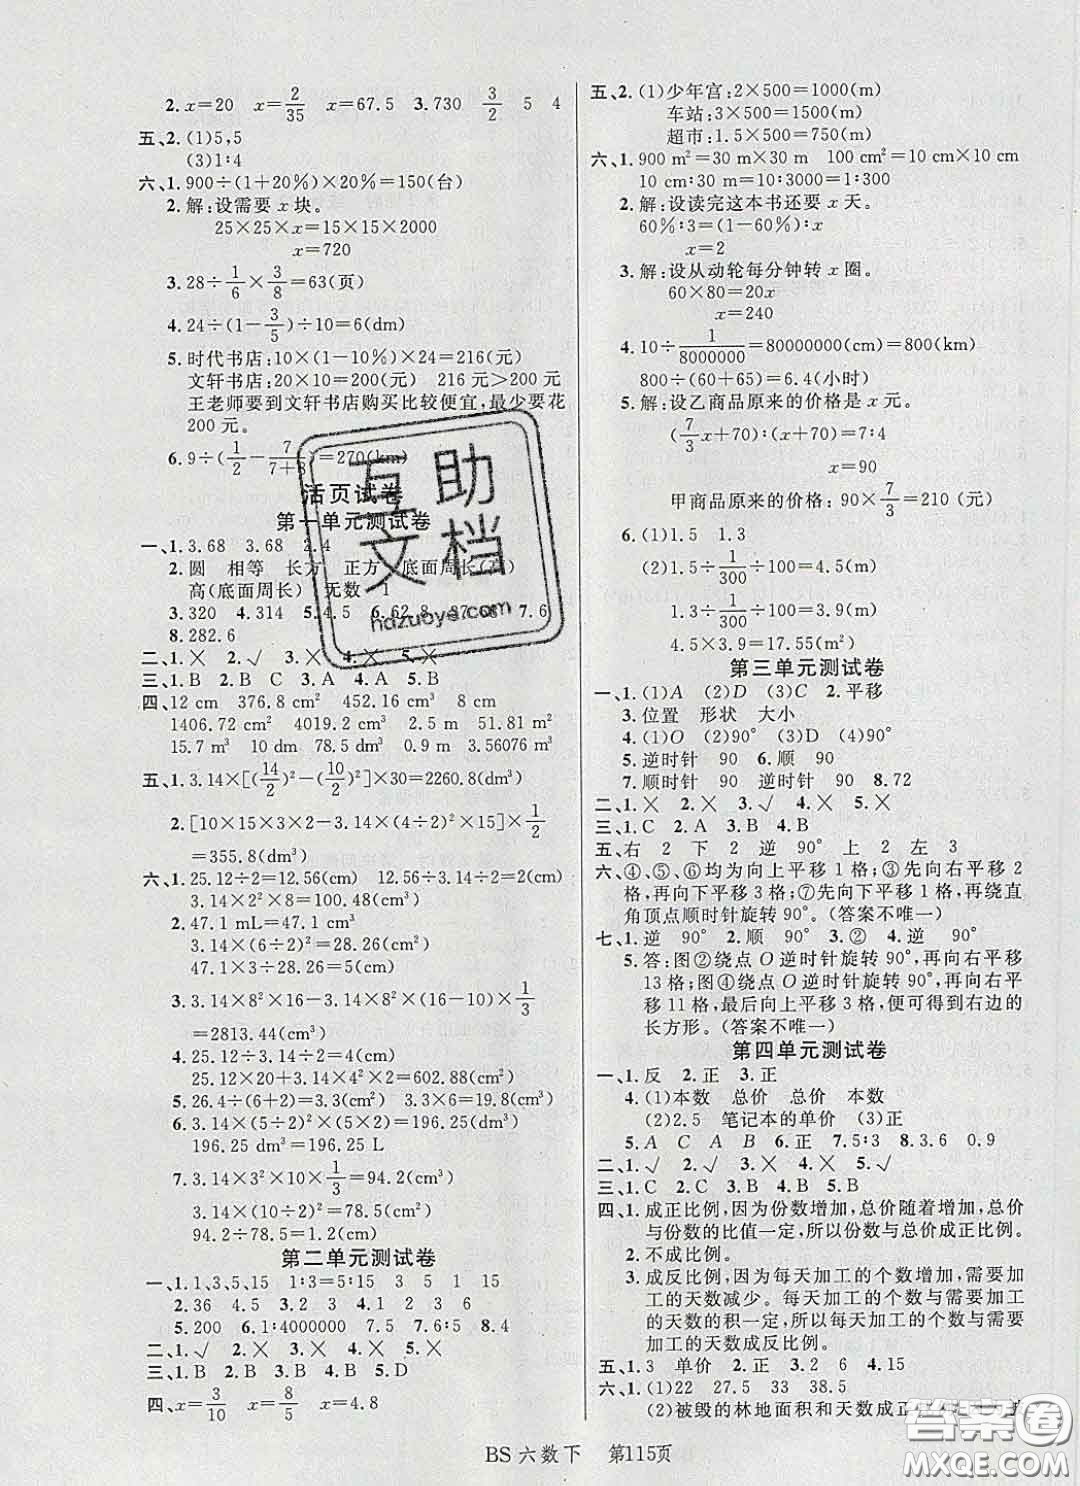 2.x=20 x=2/35 x=67.5 3.730 3/2 5 4
五、2.(1)5,5
(3)1∶4
六、1.900÷(1+20%)×20%=150(台)
2.解:设需要 x 块。
25×25×x=15×15×2000
x=720
3.28÷1/6×3/8=63(页)
4.24÷(1-3/5)÷10=6(dm)
5.时代书店:10×(1-10%)×24=216(元)
文轩书店:20×10=200(元) 216元>200元
王老师要到文轩书店购买比较便宜,最少要花
200元。
6.9÷(1/2-7/(7+8))=270(km)
活页试卷
第一单元测试卷
一、1.3.68 3.68 2.4
2.圆 相等 长方 正方 底面周长(高)
高(底面周长) 无数 1
3.320 4.314 5.4.5 6.62.8 87.92 7.6
8.282.6
二、1.× 2.√ 3.× 4.× 5.×
三、1.B 2.B C 3.A 4.A 5.B
四、12 cm 376.8 cm² 452.16 cm³ 8 cm
1406.72 cm² 4019.2 cm³ 2.5 m 51.81 m²
15.7 m³ 10 dm 78.5 dm³ 0.4 m 3.56076 m³
五、1.3.14×[(14/2)²-(10/2)²]×30=2260.8(cm³)
2.[10×15×3×2-3.14×(4÷2)²×15]×1/2
=355.8(dm³)
六、1.25.12÷2=12.56(cm) 12.56÷3.14÷2=2(cm)
3.14×2²×8=100.48(cm³)
2.47.1 mL=47.1 cm³
3.14×(6÷2)²=28.26(cm²)
47.1×3÷28.26=5(cm)
3.3.14×8²×16-3.14×8²×(16-10)×1/3
=2813.44(cm³)
4.25.12÷3.14÷2=4(cm)
25.12×20+3.14×4²×2=602.88(cm²)
5.26.4÷(6+2)=3.3(cm²) 3.3×6=19.8(cm³)
6.3.14×(5÷2)²×(5×2)=196.25(dm³)
196.25 dm³=196.25 L
7.3.14×3²×10×1/3=94.2(cm³)
3.14×(10÷2)²=78.5(cm²)
94.2÷78.5=1.2(cm)
第二单元测试卷
一、1.1,3,5,15 1∶3=5∶15 3 5 1 15
2.36 4.5 3.2 3 4.1 2 3 6
5.200 6.1∶4000000 7.5 6∶5 8.4
二、1.× 2.√ 3.√ 4.× 5.×
三、1.B 2.B 3.B 4.B 5.D
四、x=3/10 x=8/5 x=4.8
五、2.(1)少年宫:2×500=1000(m)
车站:3×500=1500(m)
超市:1.5×500=750(m)
六、1.900 m²=30 m×30 m 100 cm²=10 cm×10 cm
10 cm∶30 m=10∶3000=1∶300
2.解:设读完这本书还要 x 天。
60%∶3=(1-60%)∶x
x=2
3.解:设从动轮每分钟转 x 圈。
60×80=20x
x=240
4.10÷1/8000000=80000000(cm)=800(km)
800÷(60+65)=6.4(小时)
5.解:设乙商品原来的价格是 x 元。
(7/3x+70)∶(x+70)=7∶4
x=90
甲商品原来的价格:90×7/3=210(元)
6.(1)1.5 1.3
(2)1.5÷1/300÷100=4.5(m)
1.3÷1/300÷100=3.9(m)
4.5×3.9=17.55(m²)
第三单元测试卷
一、1.(1)A (2)D (3)C 2.平移
3.位置 形状 大小
4.(1)O (2)90° (3)D (4)90°
5.逆时针 90 6.顺 90
7.顺时针 90 逆时针 90 8.72
二、1.× 2.× 3.√ 4.× 5.×
三、1.C 2.A 3.B 4.B
五、右 2 下 2 逆 90° 上 2 左 3
六、④、⑤、⑥均为向上平移1格;③先向右平移2
格,再向下平移3格;⑦先向下平移1格,再绕直
角顶点顺时针旋转90°。(答案不唯一)
七、1.逆 90° 2.顺 90° 3.② 4.逆 90°
5.答:图②绕点O逆时针旋转90°,再向右平移
13格;图④绕点O逆时针旋转90°,再向右平
移11格,最后向上平移3格,便可得到右边的
长方形。(答案不唯一)
第四单元测试卷
一、1.反 2.正 3.正
4.(1)本数 总价 总价 本数
(2)2.5 笔记本的单价 (3)正
5.A C A B 6.正 7.5∶3 8.3.6 0.9
二、1.√ 2.√ 3.× 4.× 5.√
三、1.C 2.C 3.B 4.B 5.B
四、1.成正比例,因为份数增加,总价随着增加,总价
与份数的比值一定,所以份数与总价成正比例。
2.不成比例。
3.成反比例,因为每天加工的个数增加,需要
加工的天数减少。每天加工的个数与需要加工
的天数的积一定,所以每天加工的个数与需要
加工的天数成反比例。
五、1.3 单价 2.正 3.2 6 4.15
六、1.(1)22 27.5 33 38.5
(2)被毁的林地面积和天数成正
BS六数下 第115页
互助
文档
hdzuoye.com
答案卷
MXQE.COM